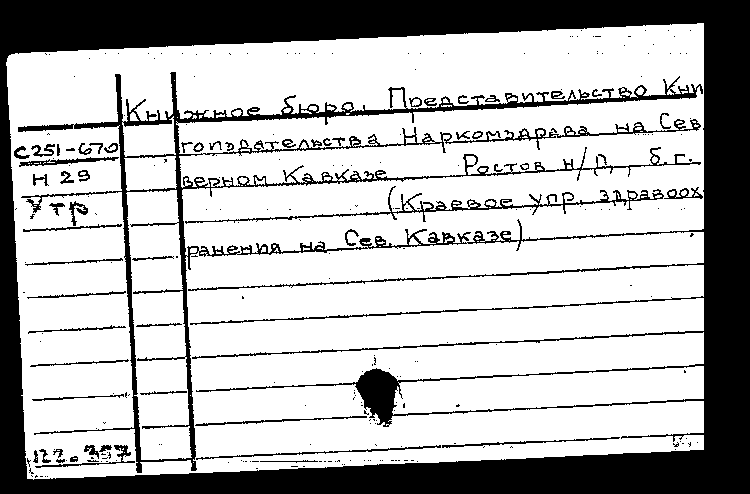 Книжное бюро. Представительство Кни
С251-670 гоиздательства Наркомздрава на Сев
Н 29 верном Кавказе. Ростов н/Д, б.г.
Утр (Краевое упр. здравоох
ранения на Сев. Кавказе)
122.357